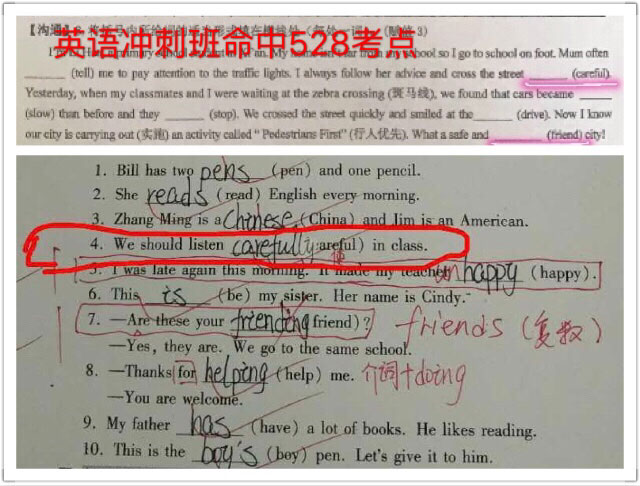 英语冲刺班命中528考点
【沟通】
school so I go to school on foot. Mum often
(tell) me to pay attention to the traffic lights. I always follow her advice and cross the street ______ (careful)
Yesterday, when my classmates and I were waiting at the zebra crossing (斑马线), we found that cars became ______
(slow) than before and they ______ (stop). We crossed the street quickly and smiled at the ______ (drive). Now I know
our city is carrying out (实施) an activity called "Pedestrians First" (行人优先). What a safe and ______ (friend) city!
1. Bill has two pens (pen) and one pencil.
2. She reads (read) English every morning.
3. Zhang Ming is a Chinese (China) and Jim is an American.
4. We should listen carefully areful) in class.
5. I was late again this morning. It made my teacher unhappy (happy).
6. This is (be) my sister. Her name is Cindy.
7. —Are these your friending friend)? friends (复数)
—Yes, they are. We go to the same school.
8. —Thanks for helping (help) me. 介词+doing
—You are welcome.
9. My father has (have) a lot of books. He likes reading.
10. This is the boy's (boy) pen. Let's give it to him.